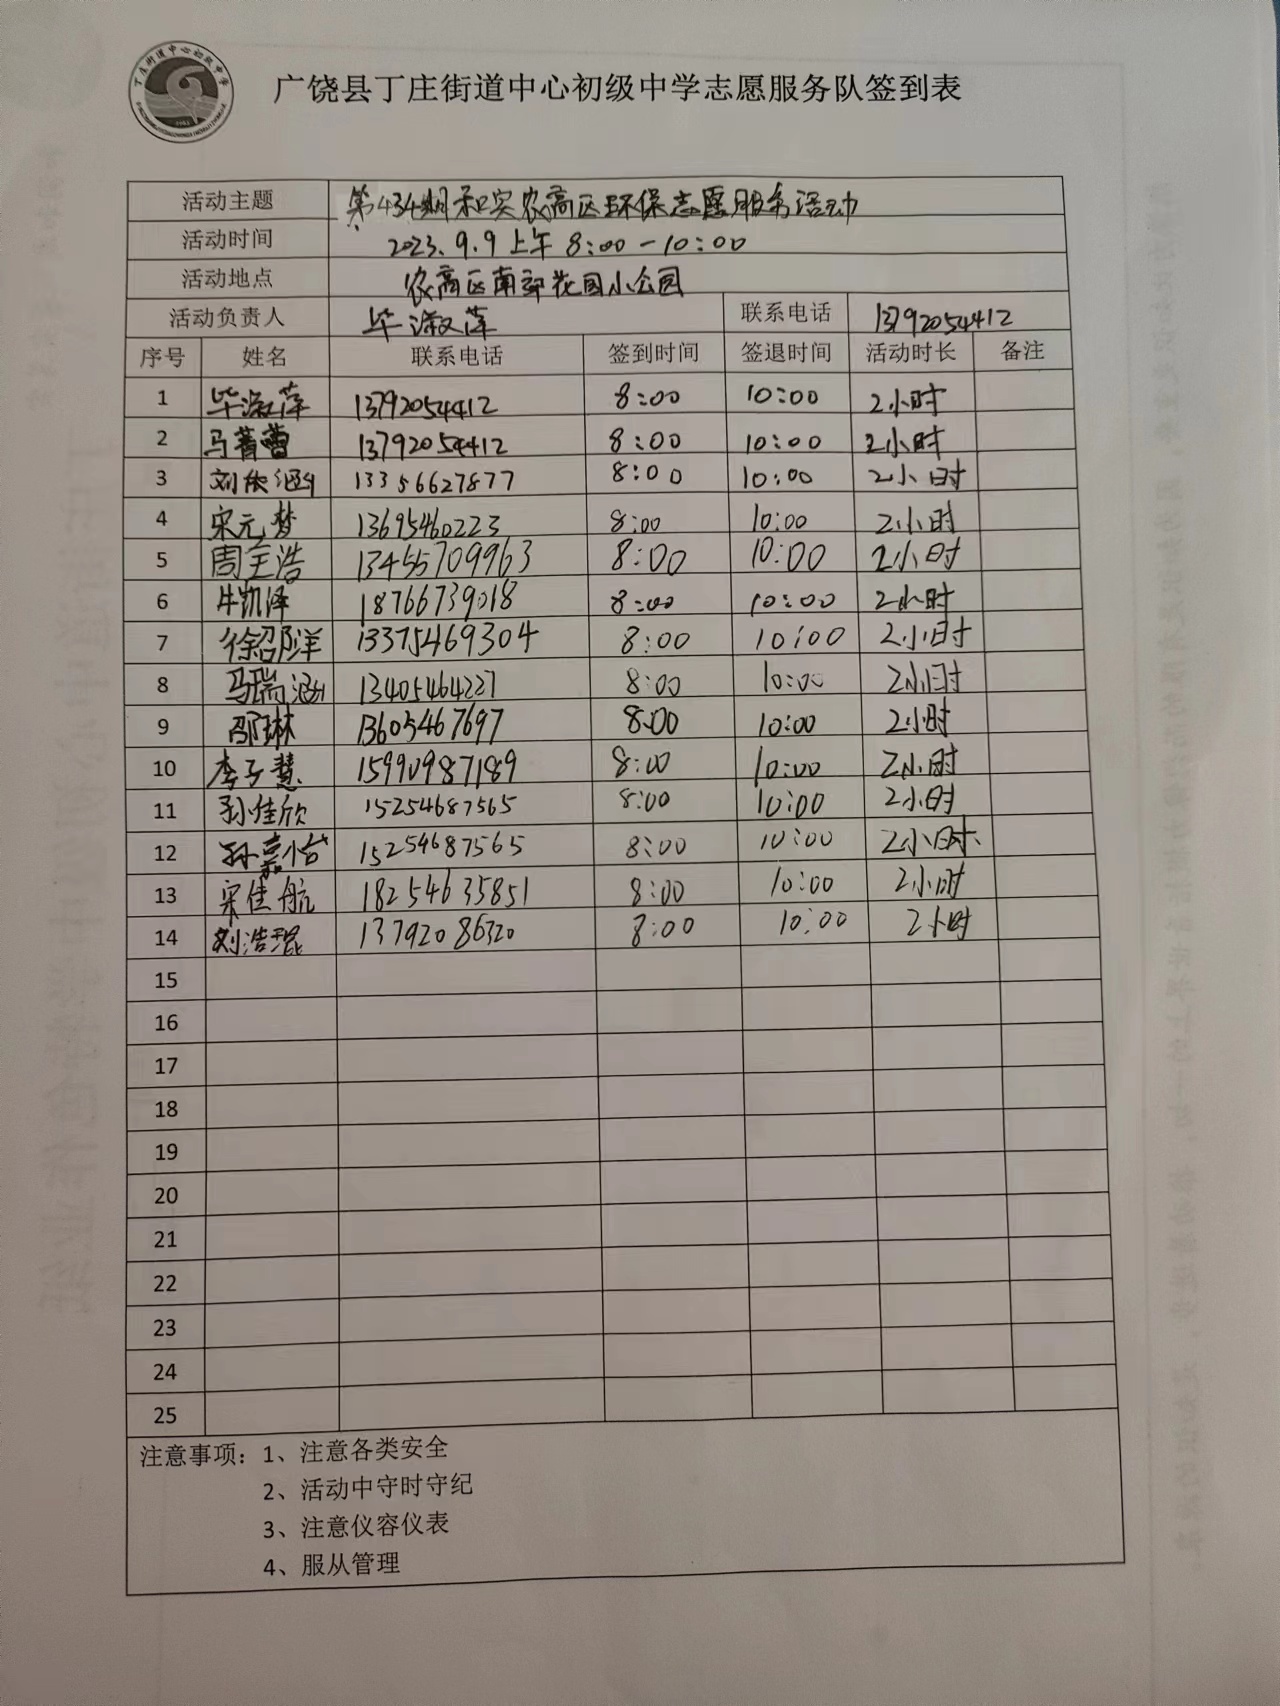 丁庄街道中心初级中学
广饶县丁庄街道中心初级中学志愿服务队签到表
活动主题 第434期和实农高区环保志愿服务活动
活动时间 2023.9.9上午8:00-10:00
活动地点 农高区南部花园小公园
活动负责人 毕淑萍 联系电话 13792054412
序号 姓名 联系电话 签到时间 签退时间 活动时长 备注
1 毕淑萍 13792054412 8:00 10:00 2小时
2 马菁曹 13792054412 8:00 10:00 2小时
3 刘依涵 13356627877 8:00 10:00 2小时
4 宋元梦 13695460223 8:00 10:00 2小时
5 周至浩 13455709963 8:00 10:00 2小时
6 牛凯泽 18766739018 8:00 10:00 2小时
7 徐绍洋 13375469304 8:00 10:00 2小时
8 马瑞涵 13405464227 8:00 10:00 2小时
9 邵琳 13605467697 8:00 10:00 2小时
10 李子慧 15990987189 8:00 10:00 2小时
11 孙佳欣 15254687565 8:00 10:00 2小时
12 孙嘉怡 15254687565 8:00 10:00 2小时
13 宋佳航 18254635851 8:00 10:00 2小时
14 刘浩琨 13792086320 8:00 10:00 2小时
15
16
17
18
19
20
21
22
23
24
25
注意事项：1、注意各类安全
2、活动中守时守纪
3、注意仪容仪表
4、服从管理